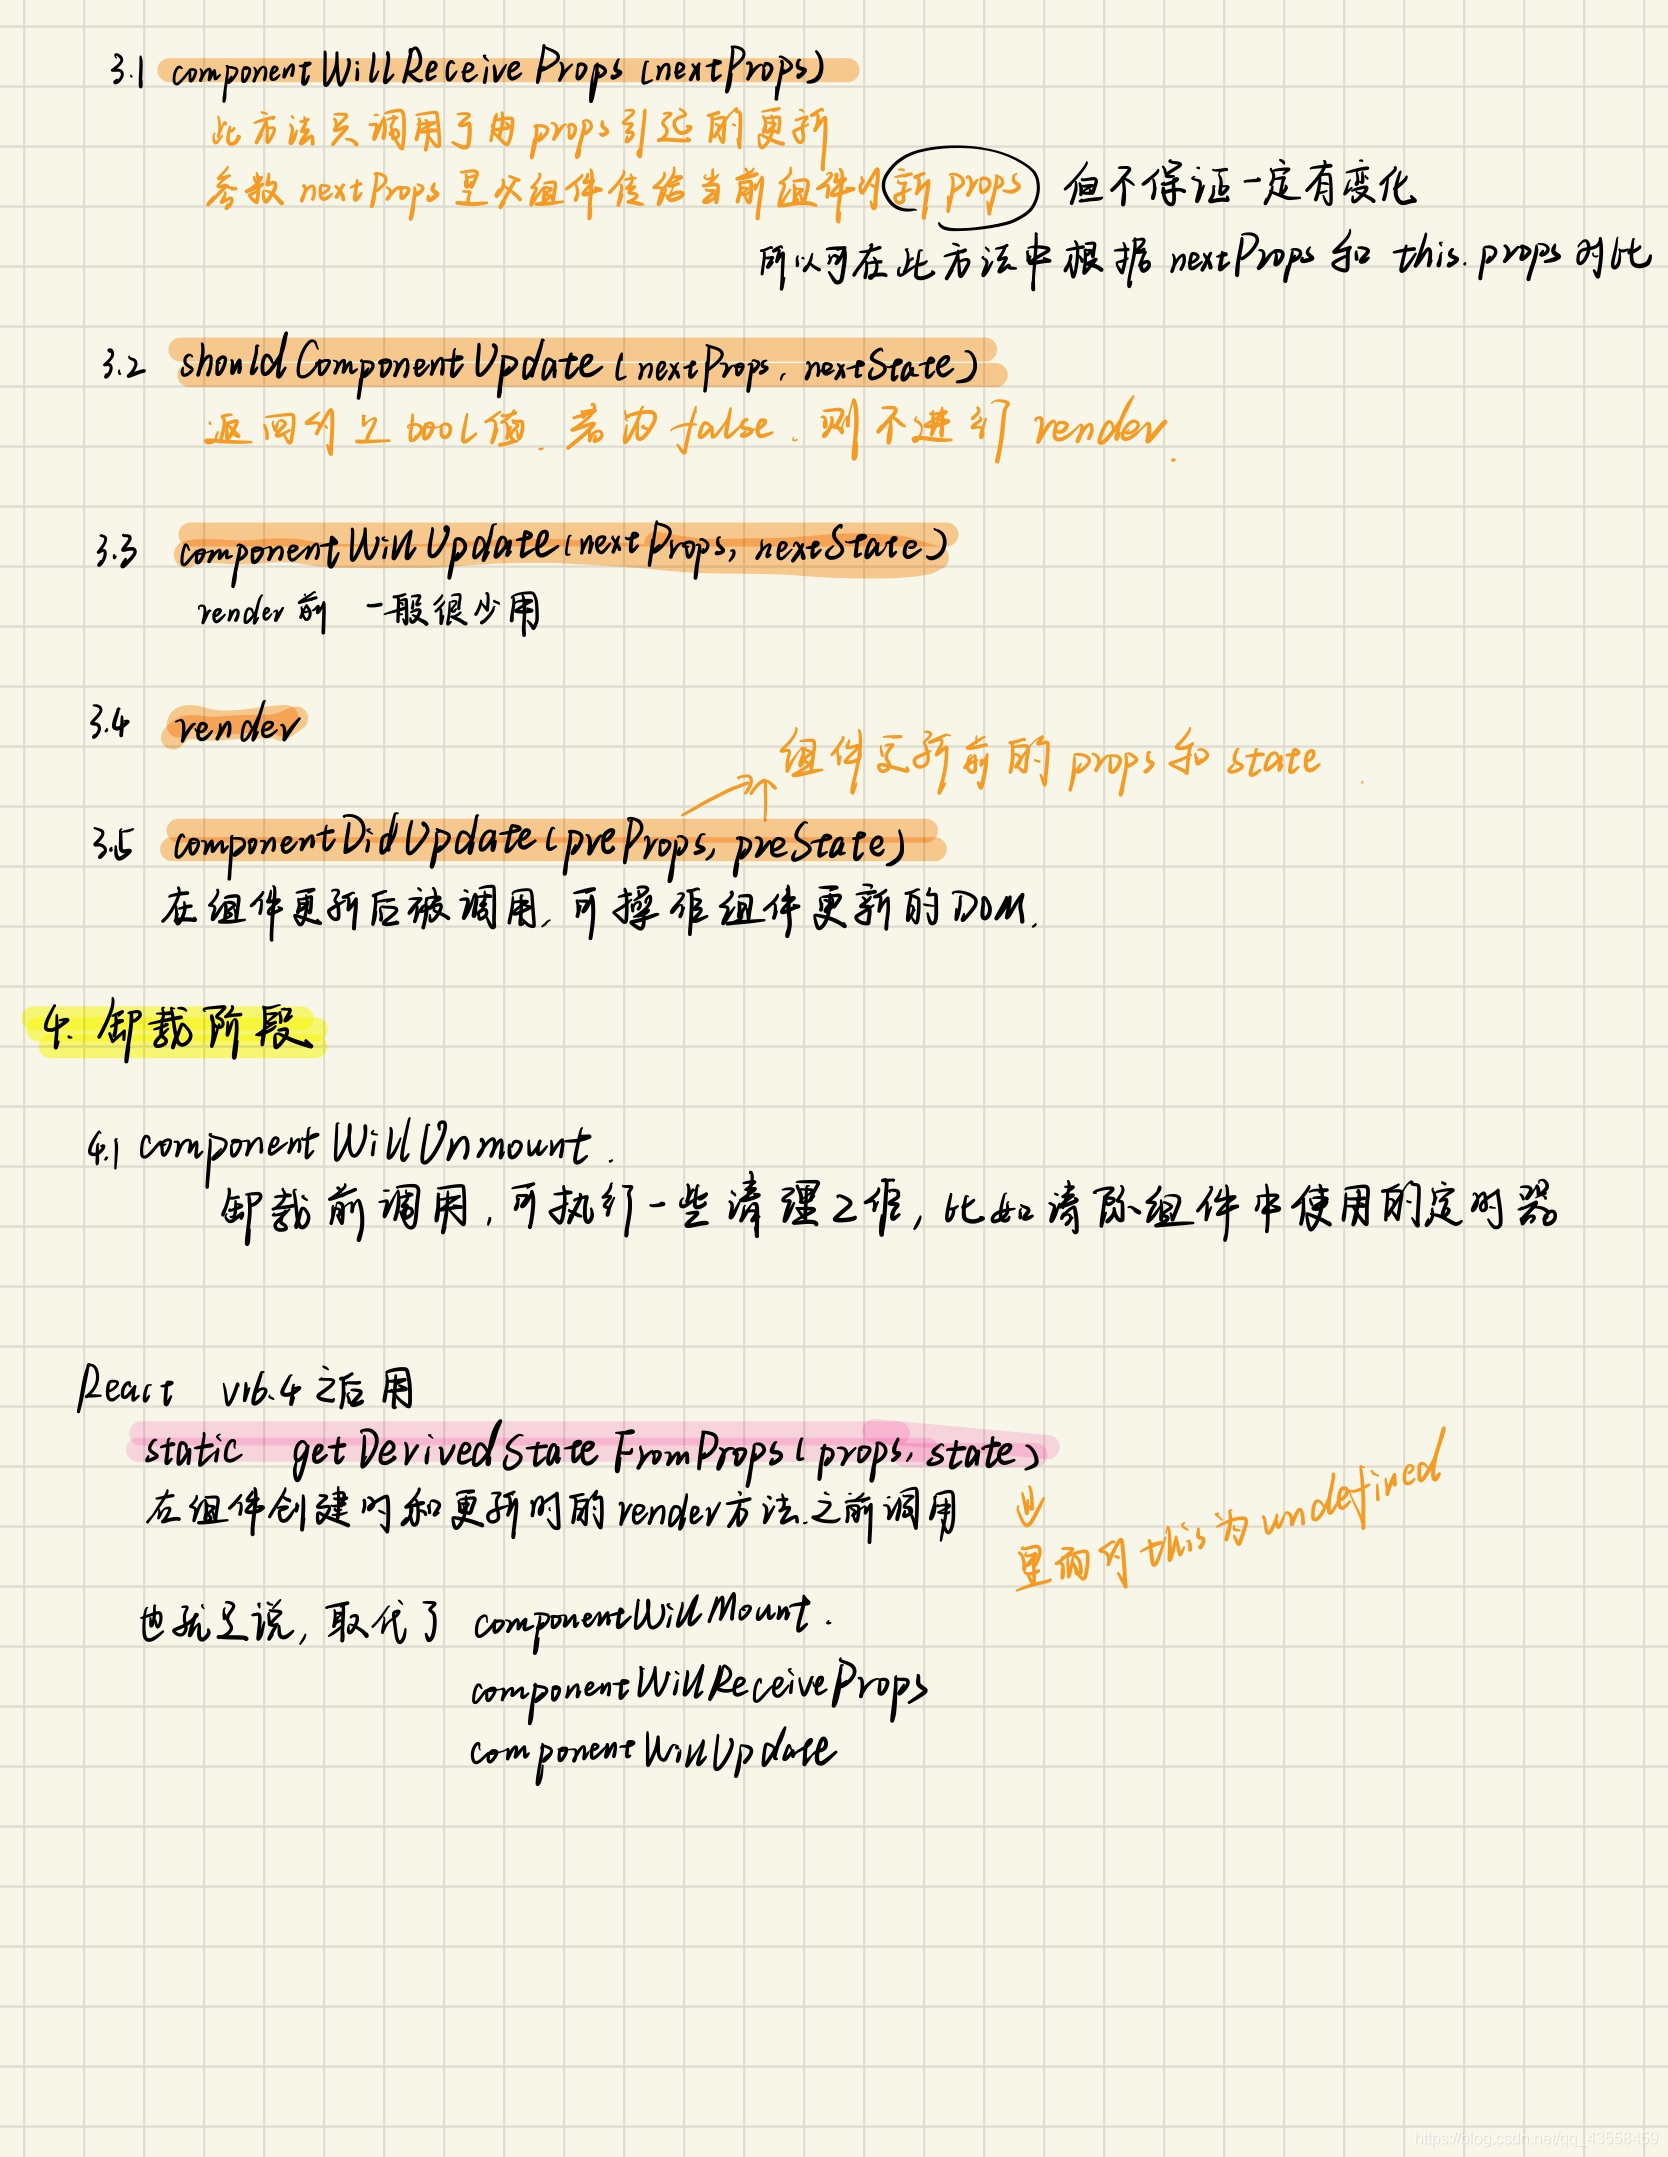 3.1 componentWillReceiveProps(nextProps)
此方法只调用于由props引起的更新
参数 nextProps 是父组件传给当前组件的新 props 但不保证一定有变化
所以可在此方法中根据 nextProps 和 this.props 对比
3.2 shouldComponentUpdate(nextProps, nextState)
返回的是 bool值, 若为 false, 则不进行 render.
3.3 componentWillUpdate(nextProps, nextState)
render前 一般很少用
3.4 render
组件更新前的 props 和 state
3.5 componentDidUpdate(preProps, preState)
在组件更新后被调用, 可操作组件更新的DOM.
4. 卸载阶段
4.1 componentWillUnmount.
卸载前调用, 可执行一些清理工作, 比如清除组件中使用的定时器
React v16.4 之后用
static getDerivedStateFromProps(props, state)
在组件创建时和更新时的render方法之前调用
里面的 this 为 undefined
也就是说, 取代了 componentWillMount.
componentWillReceiveProps
componentWillUpdate
https://blog.csdn.net/qq_43558459